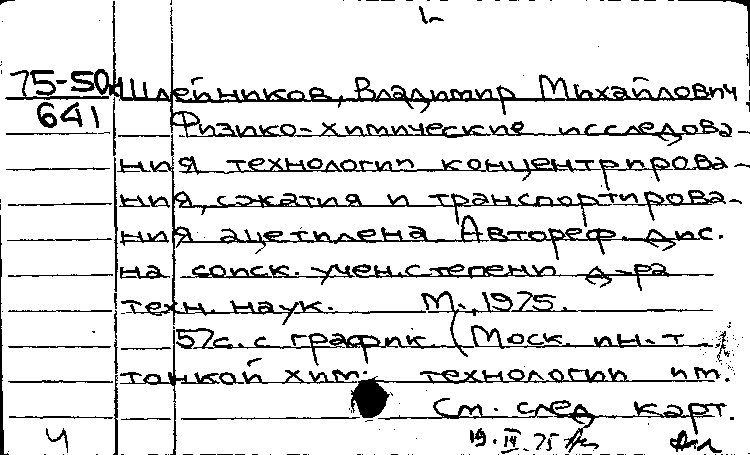 75-50
641
Шлейников, Владимир Михайлович
Физико-химические исследова-
ния технологии концентрирова-
ния, сжатия и транспортирова-
ния ацетилена. Автореф. дис.
на соиск. учен. степени д-ра
техн. наук. М., 1975.
57 с. с график. (Моск. ин-т
тонкой хим. технологии им.
См. след. карт.
Ч 19.IV.75